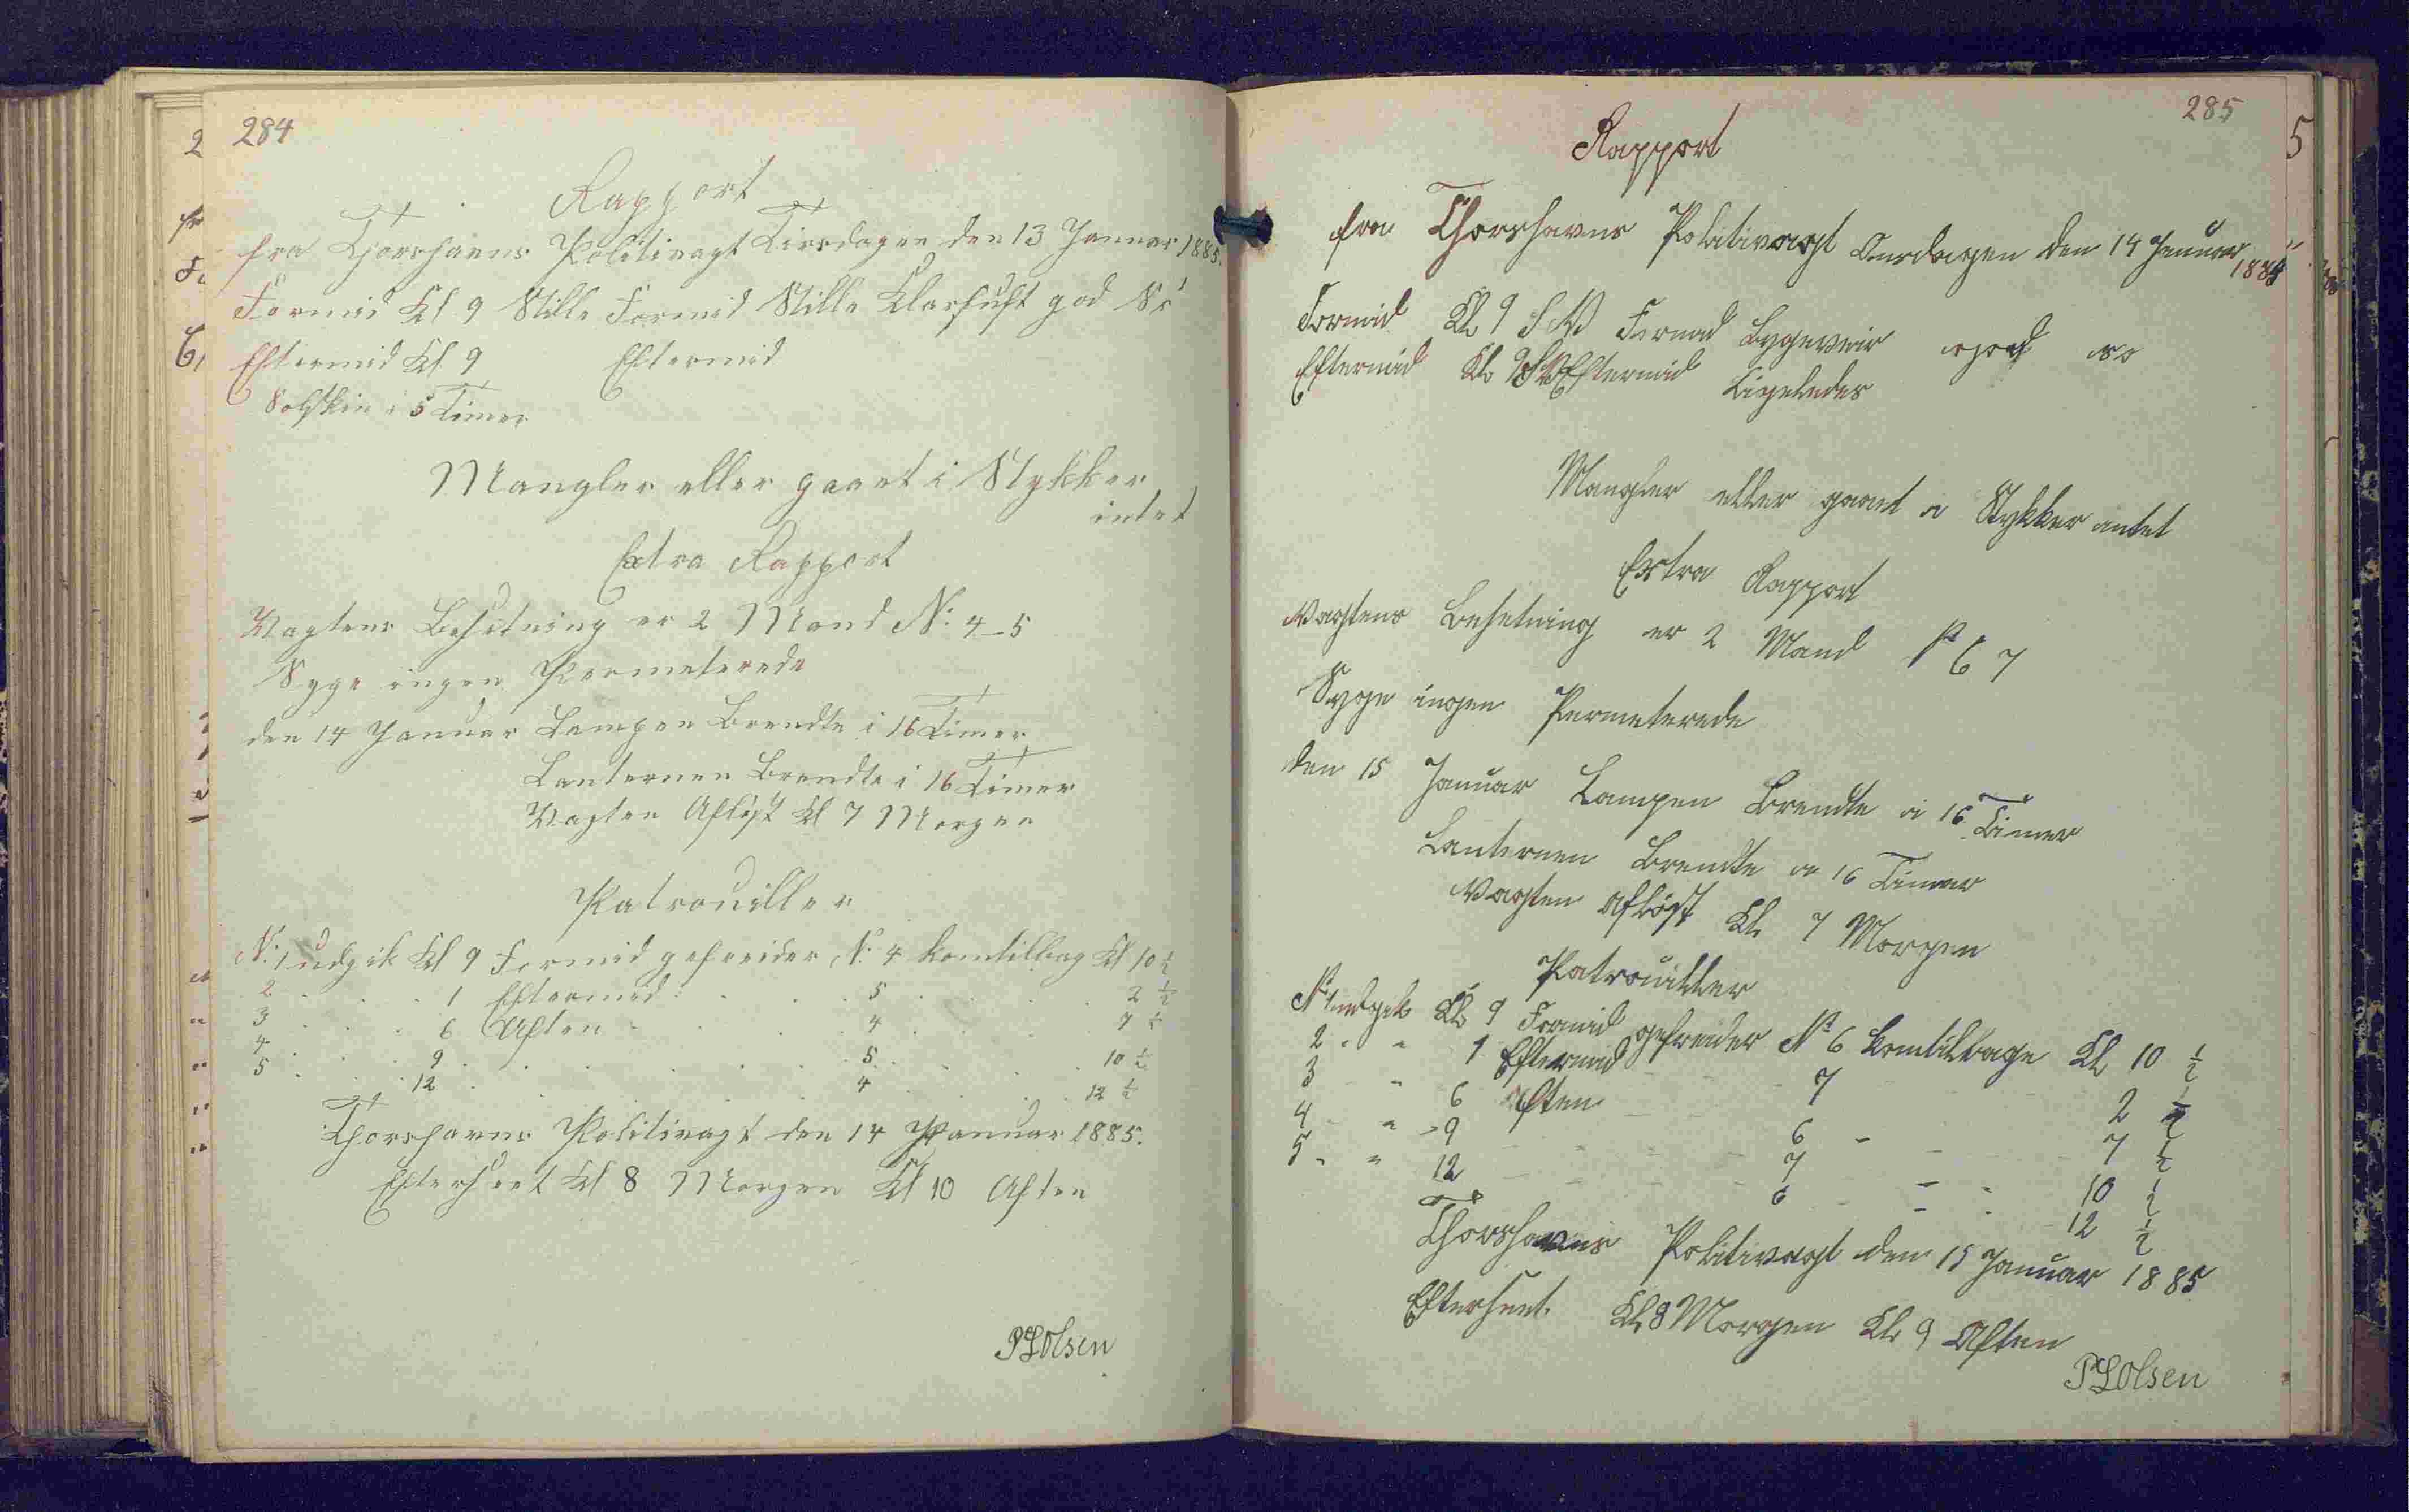 284
Rapport
fra Thorshavns Politivagt Tirsdagen den 13 Januar 1885.
Formid Kl 9 Stille Formid Stille Klarluft god Sö
Eftermid Kl 9 Eftermid
Solskin i 5 Timer
Mangler eller gaaet i Stykker
intet
Extra Rapport
Vagtens Besetning er 2 Mand N: 4-5
Syge ingen Permeterede
den 14 Januar Lampen Brendte i 16 Timer
Lanternen Brendte i 16 Timer
Vagten Afløst Kl 7 Morgen
Patrouiller
N: 1 udgik Kl 9 Formid gefreider N: 4 komtilbag Kl 10 ½
2 . . . 1 Eftermid . . . 5 . . . 2 ½
3 . . . 6 Aften . . . 4 . . . 7 ½
4 . . . 9 . . . 5 . . . 10 ½
5 . . . 12 . . . 4 . . . 12 ½
Thorshavns Politivagt den 14 Januar 1885.
Efterseet Kl 8 Morgen Kl 10 Aften
PLOlsen
285
Rapport
fra Thorshavns Politivagt Onsdagen den 14 Januar
1885
Formid Kl 9 SV Formid Bygeveir god so
Eftermid Kl 9 SV Eftermid Ligeledes
Mangler eller gaaet i Stykker intet
Extra Rapport
Vagtens Besetning er 2 Mand N: 6 7
Syge ingen Permeterede
den 15 Januar Lampen Brendte i 16 Timer
Lanternen Brendte i 16 Timer
Vagten Afløst Kl 7 Morgen
Patrouiller
N: 1 udgik Kl 9 Formid gefreider N: 6 komtilbage Kl 10 ½
2 " " 1 Eftermid - 7 - 2 ½
3 - " 6 Aften - 6 - 7 ½
4 - " - 9 - 7 - 10 ½
5 - " 12 - 6 - 12 ½
Thorshavns Politivagt den 15 Januar 1885
Efterseet. Kl 8 Morgen Kl 9 Aften
PLOlsen